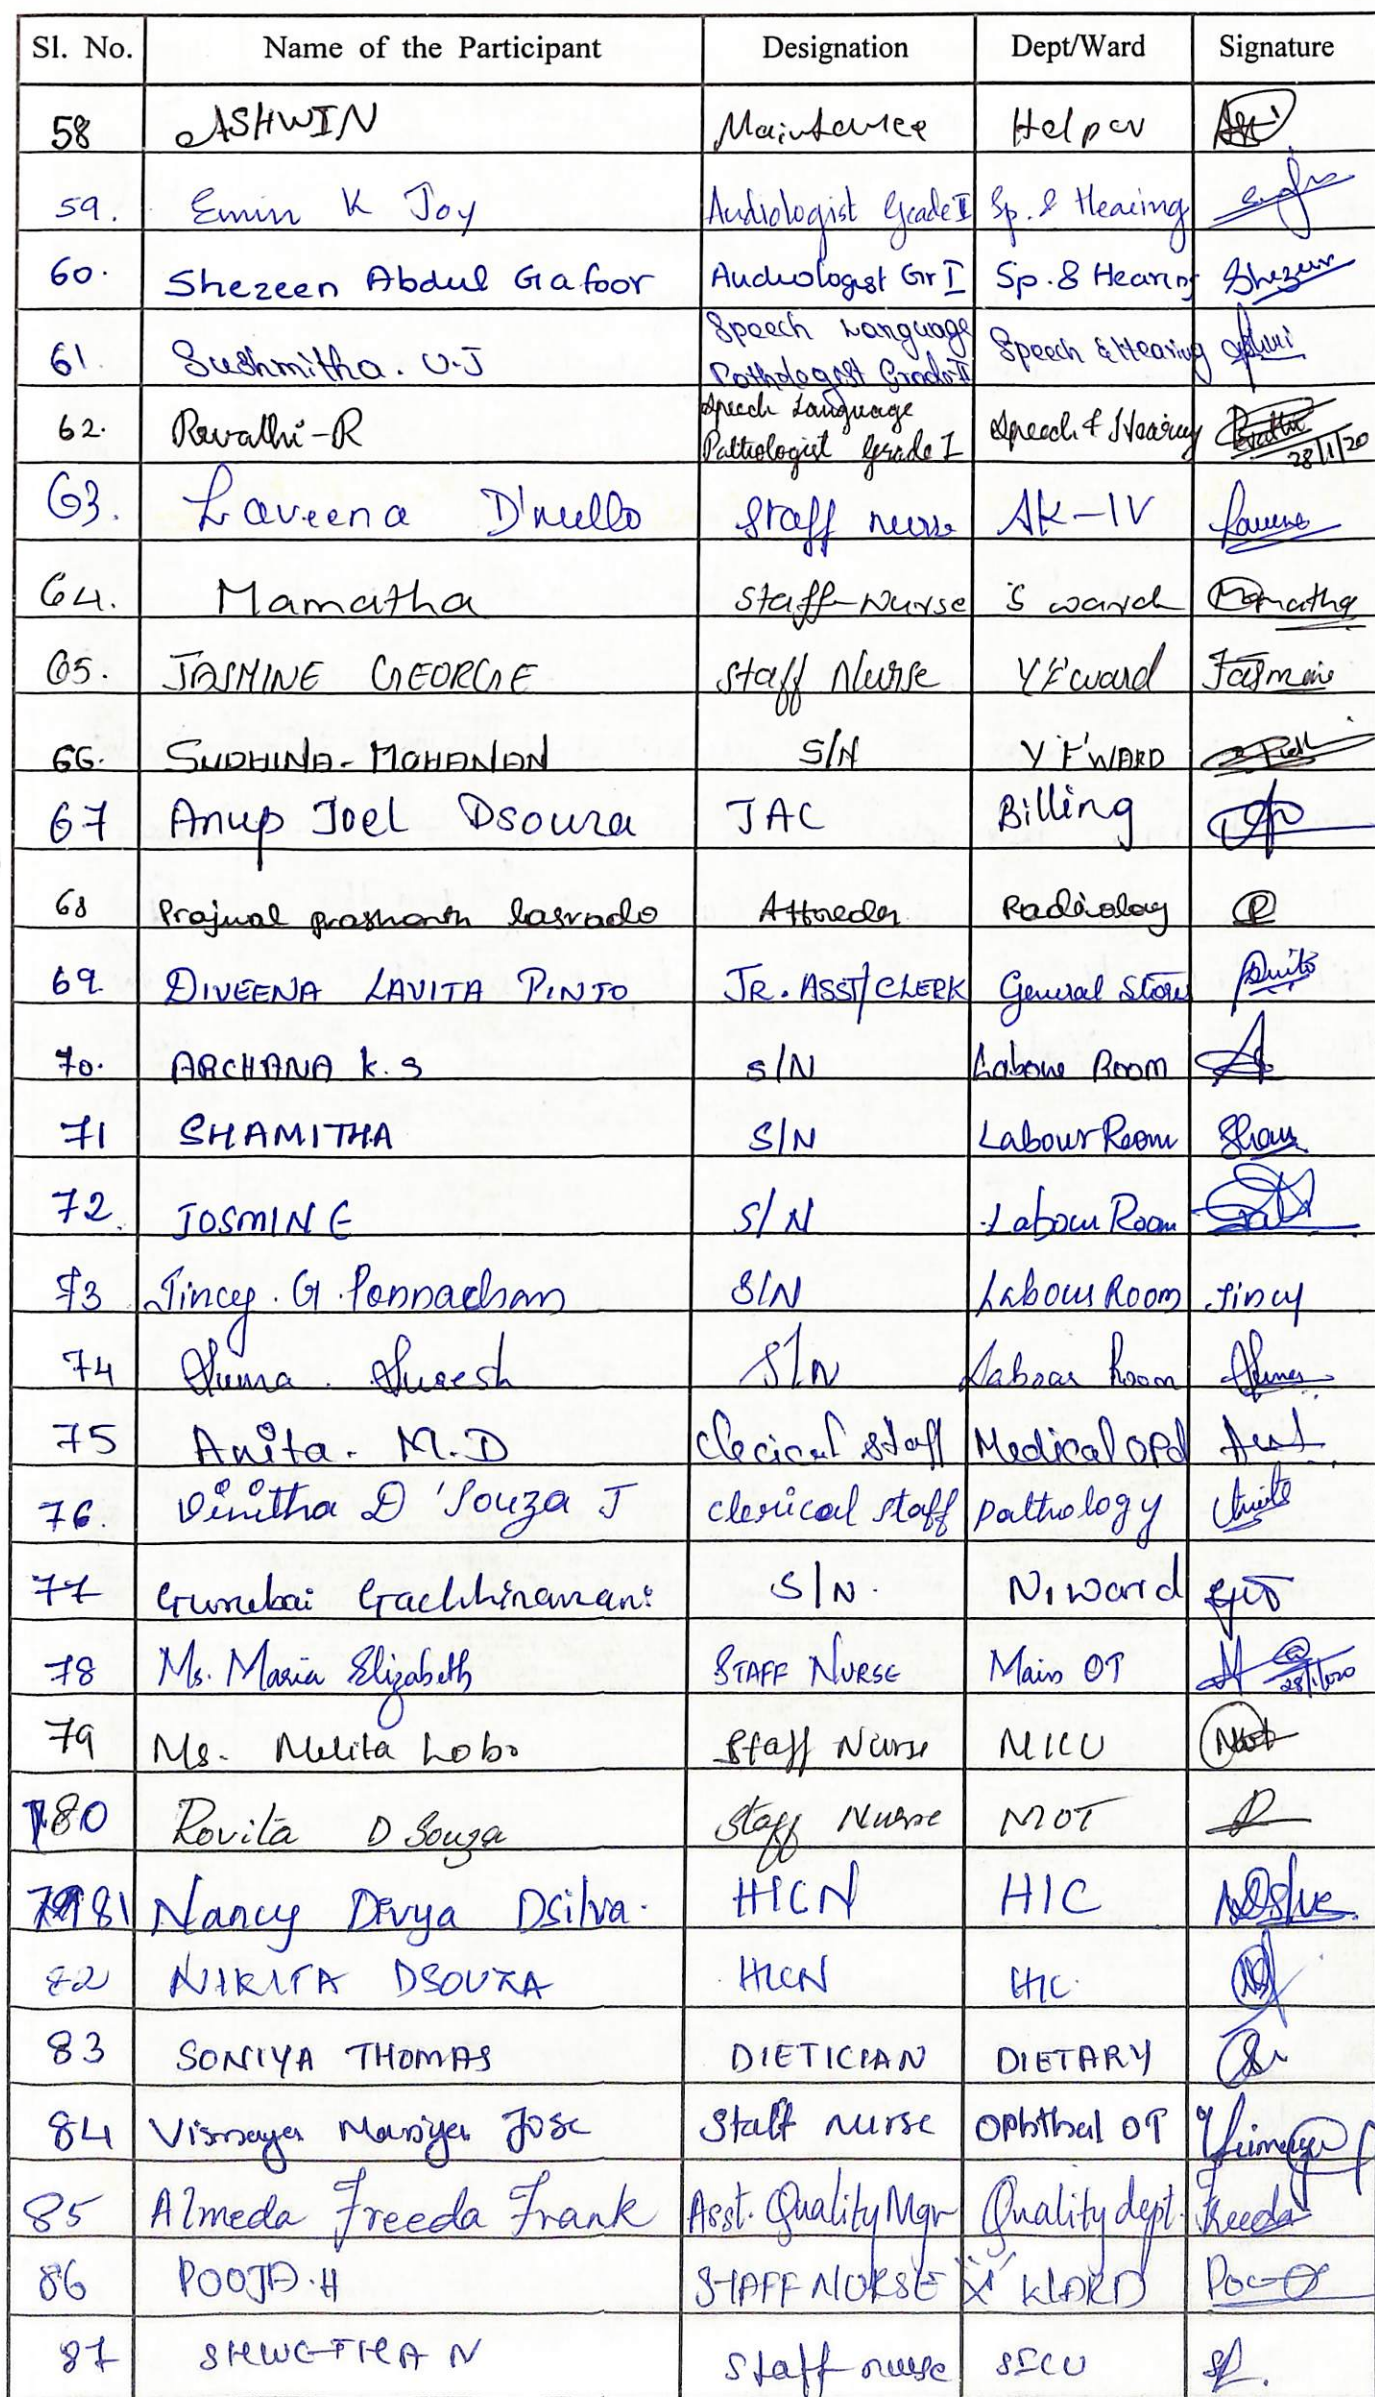 Sl. No. Name of the Participant Designation Dept/Ward Signature
58 ASHWIN Maintance Helper
59. Emin K Joy Audiologist Grade I Sp. & Hearing
60. Shezeen Abdul Gafoor Audiologist Gr I Sp. & Hearing Shezeen
61. Sushmitha. U.J Speech Language Pathologist Grade-II Speech & Hearing
62. Revathi-R Speech Language Pathologist Grade I Speech & Hearing 28/1/20
63. Laveena D'mello Staff nurse AK-IV
64. Mamatha Staff Nurse S ward Mamatha
65. JASMINE GEORGE Staff Nurse Y'E'ward Jasmine
66. SUDHINA-MOHANAN S/N Y'E'WARD
67 Anup Joel Dsouza JAC Billing
68 Prajwal prashanth lasrado Attneder Radiology
69 DIVEENA LAVITA PINTO JR. ASST/CLERK General Store
70. ARCHANA K.S S/N Labour Room
71 SHAMITHA S/N Labour Room
72. JOSMINE S/N Labour Room
73 Jincy. G. Ponnachan S/N Labour Room Jincy
74 Suma. Suresh S/N Labour Room
75 Anita. M.D Clecical staff Medical OPD
76. Vinitha D'Souza J clerical staff Pathology
77 Gurubai Gachhinamani S/N. N1 ward
78 Ms. Maria Elizabeth STAFF NURSE Main OT 28/1/2020
79 Ms. Melita Lobo Staff Nurse MICU
80 Rovita D Souza Staff Nurse MOT
81 Nancy Divya Dsilva. HICN HIC
82 NIKITA DSOUZA HICN HIC
83 SONIYA THOMAS DIETICIAN DIETARY
84 Vismaya Mariya Jose Staff nurse Ophthal OT
85 Almeda Freeda Frank Asst. Quality Mgr Quality dept. Freeda
86 POOJA.H STAFF NURSE WARD
87 SHWETHA N Staff nurse SICU